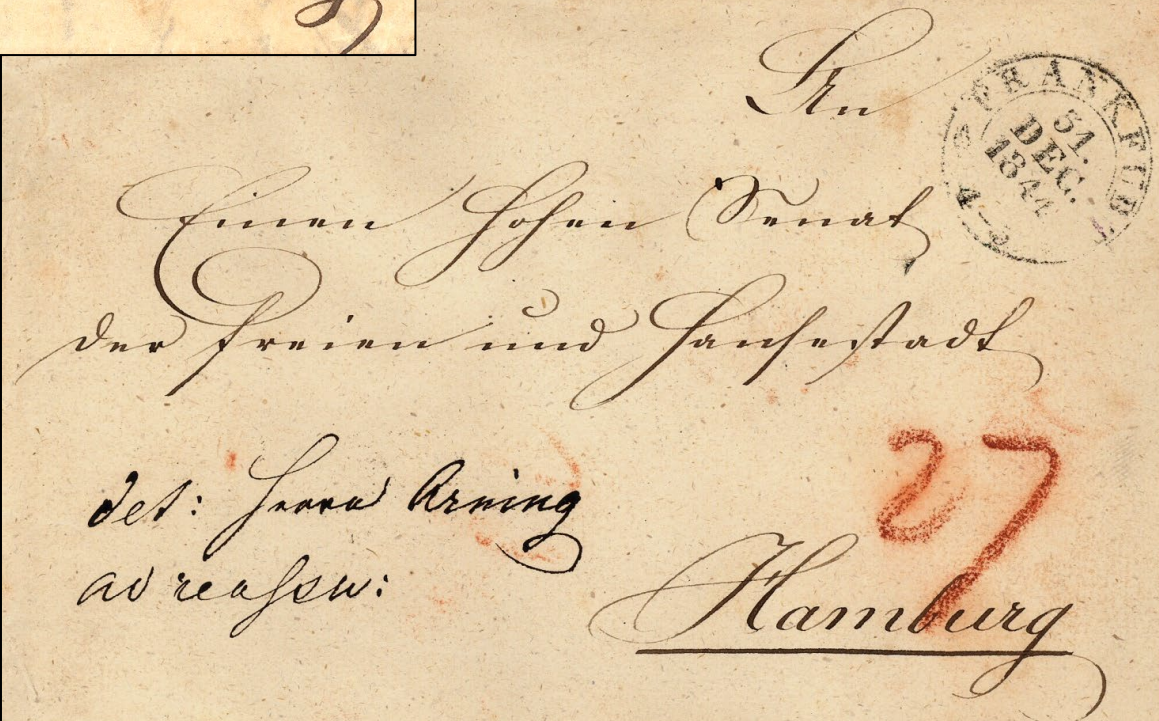 An
FRANKFURT
31.
DEC.
1844
Einen Hohen Senat
der freien und Hansestadt
27
det: Herrn Arning
ad
Hamburg